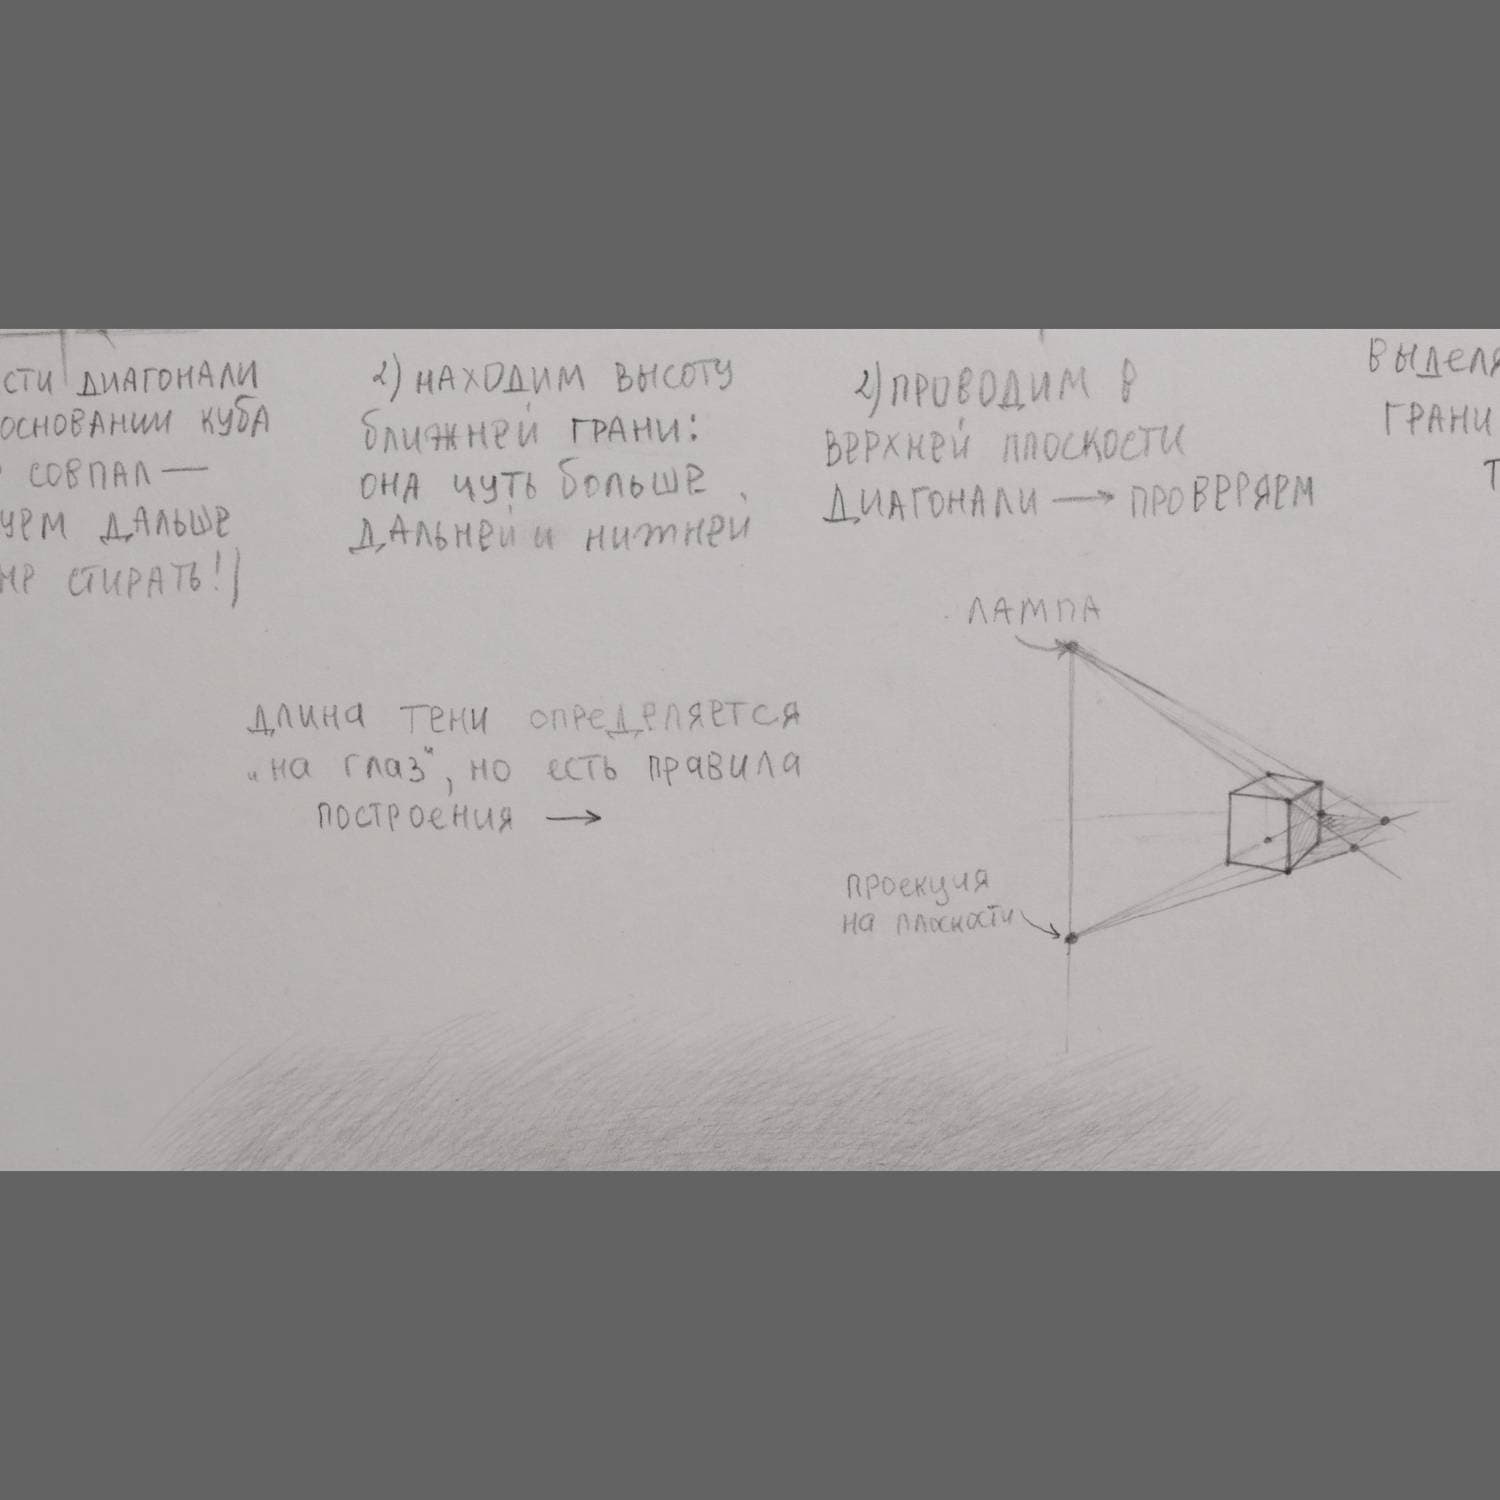 сти диагонали
основании куба
совпал —
уем дальше
не стирать!)
2) находим высоту
ближней грани:
она чуть больше
дальней и нижней
2) проводим в
верхней плоскости
диагонали → проверяем
выделя
грани
т
лампа
длина тени определяется
„на глаз“, но есть правила
построения →
проекция
на плоскости